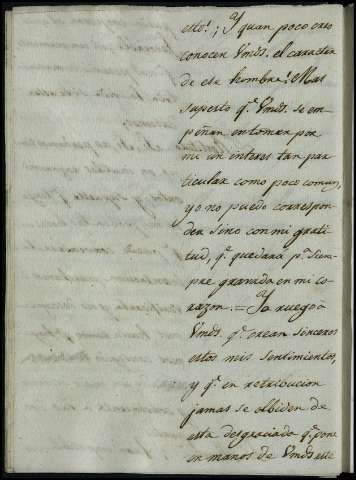 esto!; Y quan poco creo
conocen Vmds. el caracter
de este hombre! Mas
supuesto q.e Vmds. se em
peñan en tomar por
mi un interes tan par
ticular como poco comun,
yo no puedo correspon
der sino con mi grati
tud, q.e quedara p.a siem
pre gravada en mi co
razon. = Ya ruego à
Vmds. q.e crean sinceros
estos mis sentimientos,
y q.e en retribucion
jamas se olbiden de
esta desgraciada q.e pone
en manos de Vmds este